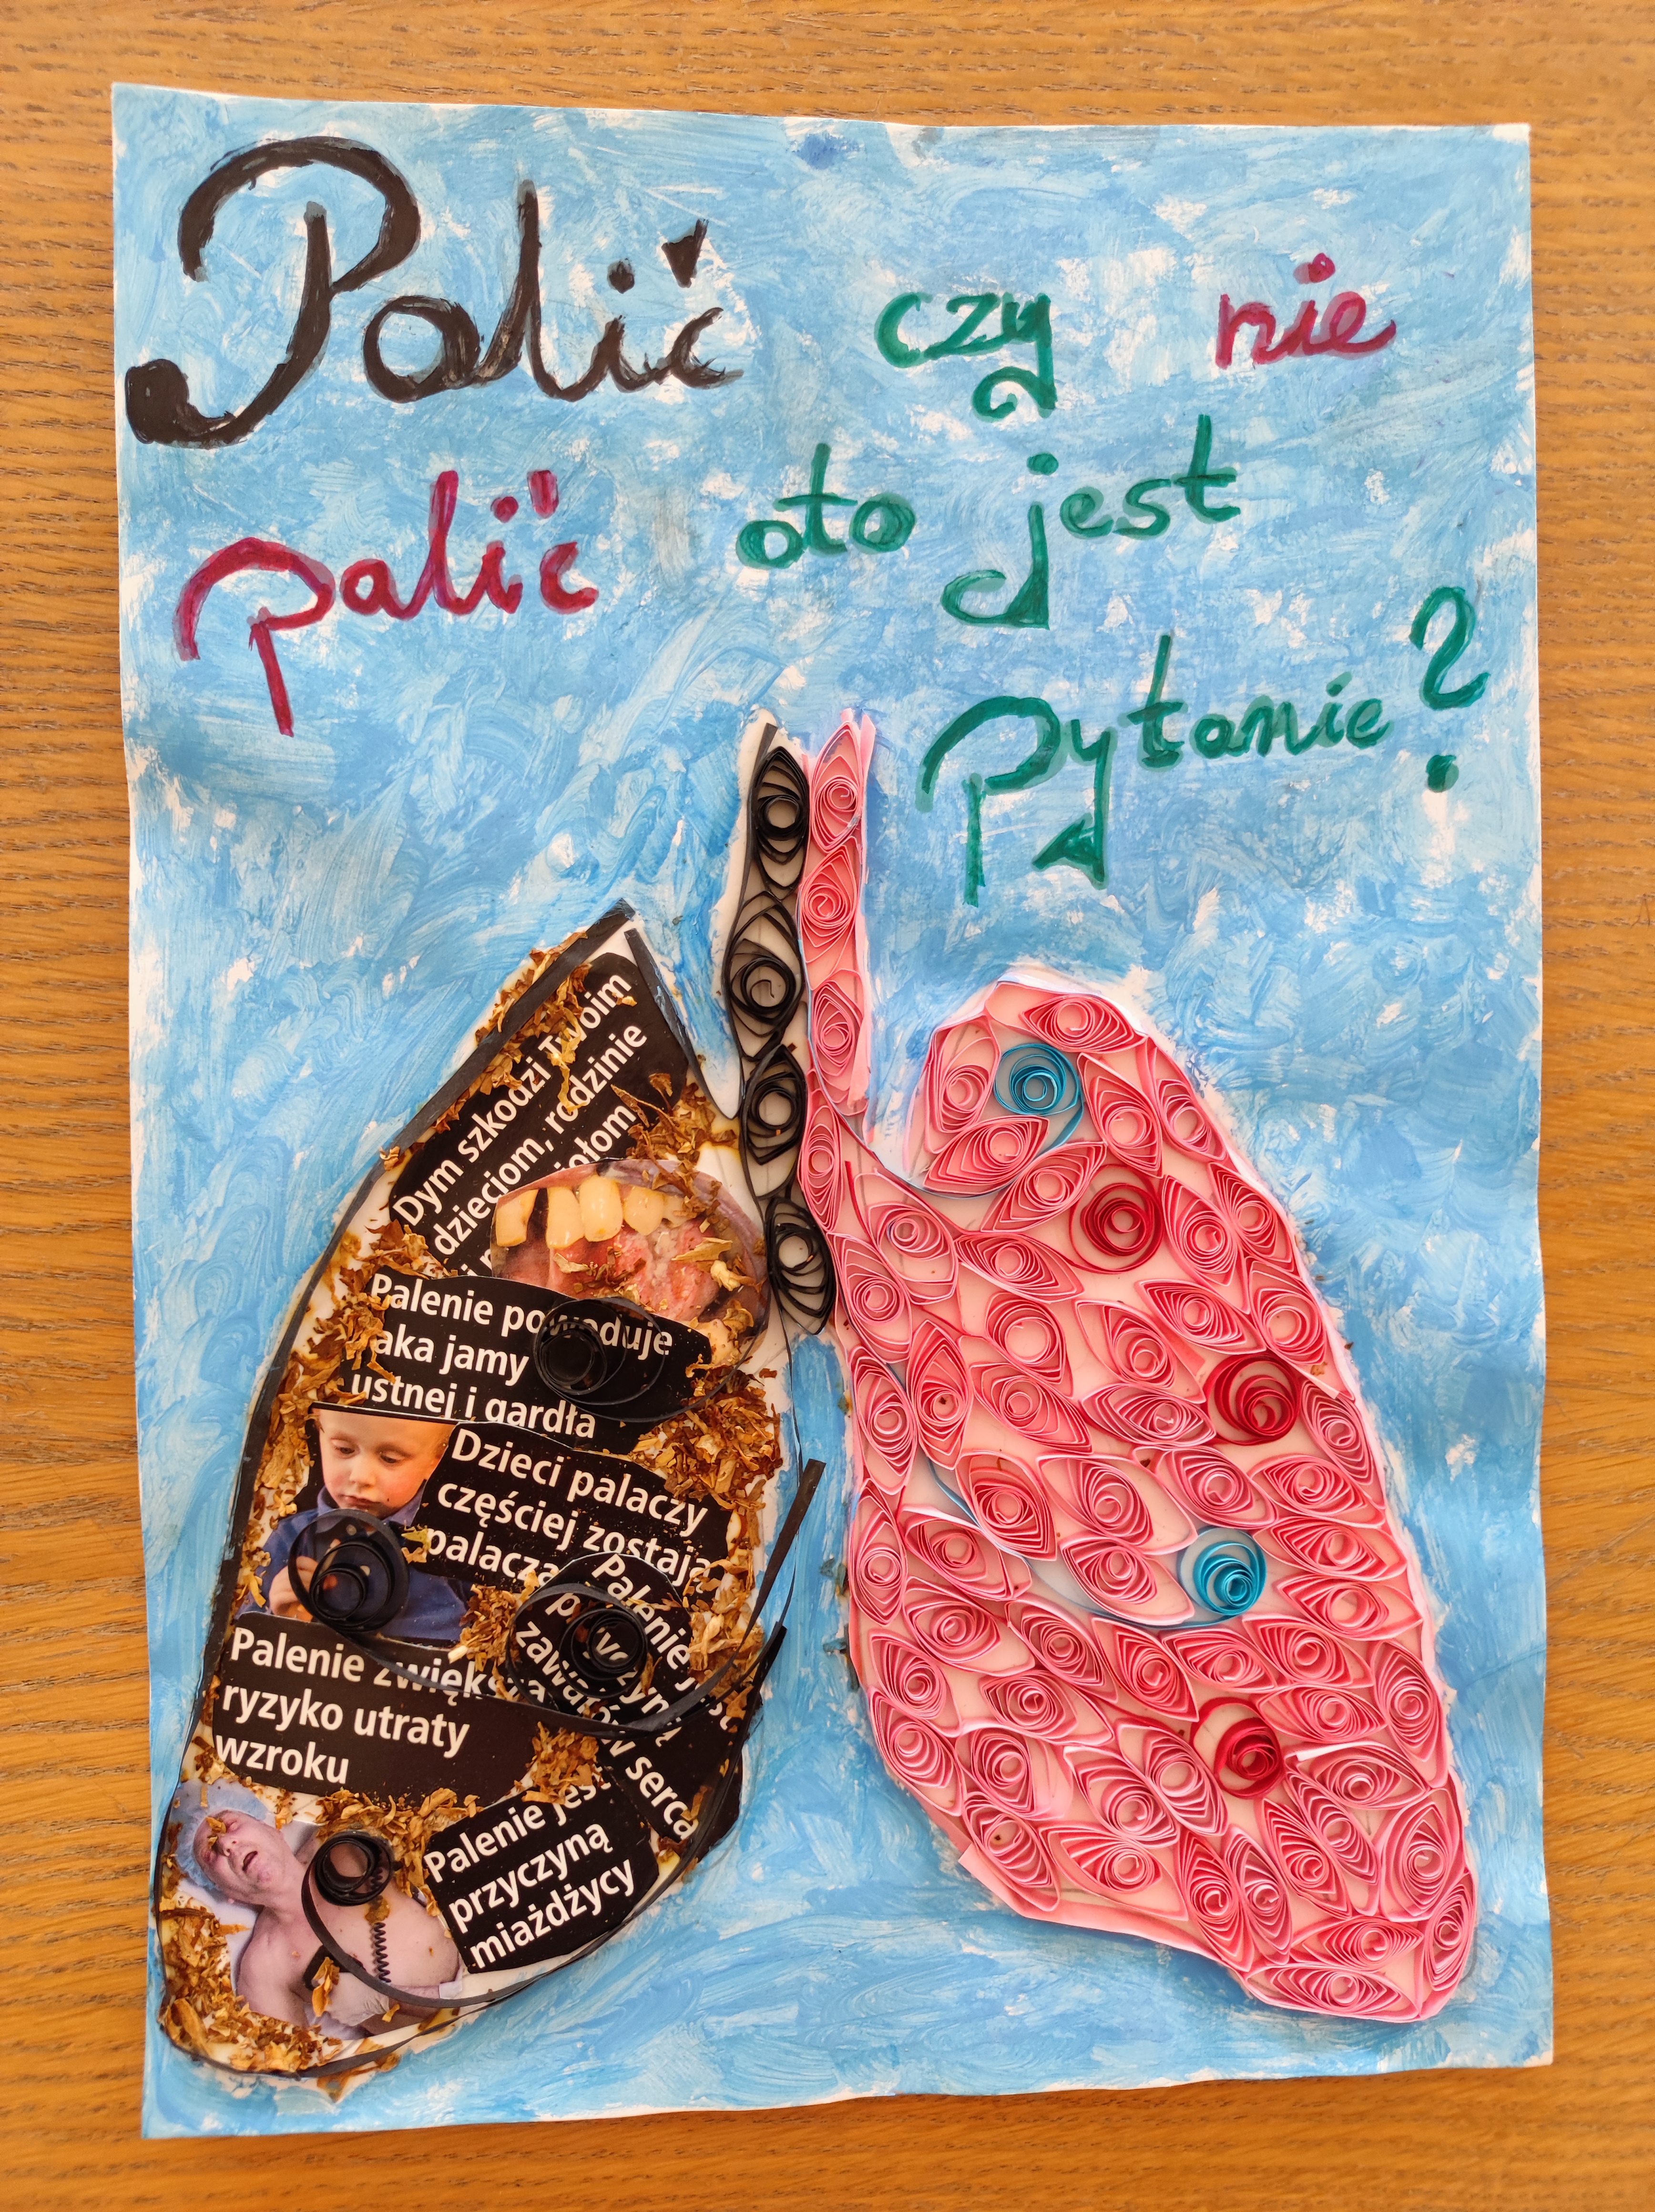 Palić czy nie
palić oto jest
Pytanie?
Dym szkodzi Twoim
dzieciom, rodzinie
Palenie powoduje
raka jamy
ustnej i gardła
Dzieci palaczy
częściej zostają
Palenie jest
zawałów serca
Palenie zwiększa
ryzyko utraty
wzroku
Palenie jest
przyczyną
miażdżycy